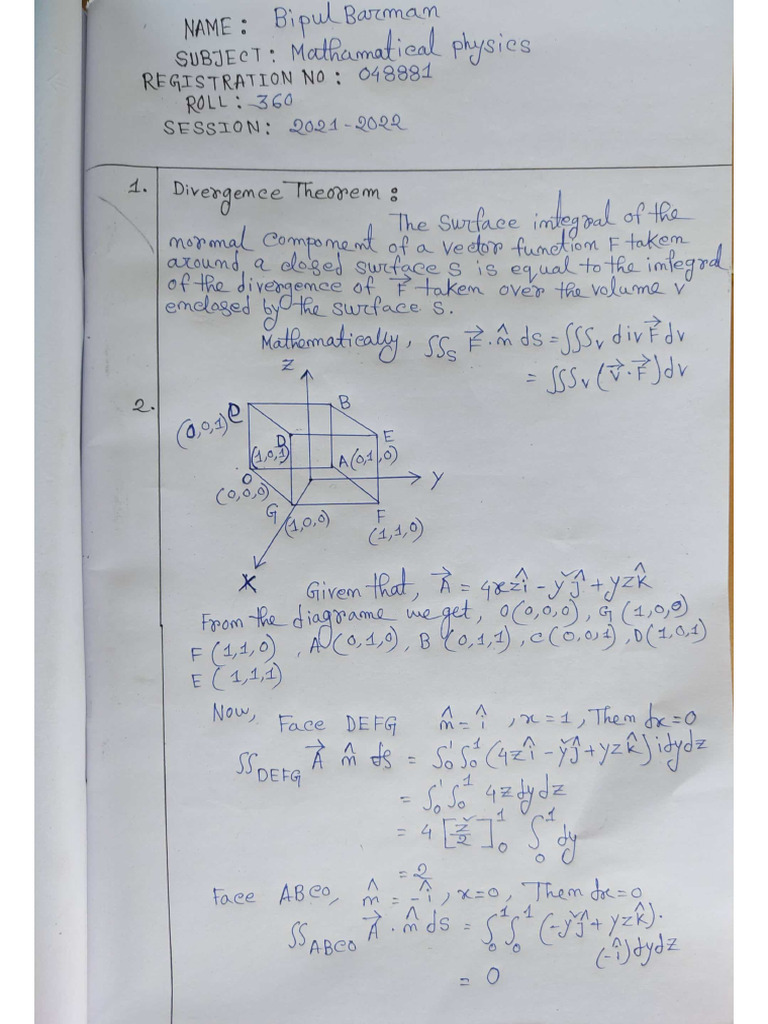 NAME: Bipul Barman
SUBJECT: Mathamatical physics
REGISTRATION NO: 048881
ROLL: 360
SESSION: 2021-2022
1. Divergence Theorem:
The surface integral of the
normal component of a vector function F taken
around a closed surface s is equal to the integral
of the divergence of F⃗ taken over the volume v
enclosed by the surface s.
Mathematically, ∫∫s F⃗·n̂ ds = ∫∫∫v div F⃗ dv
= ∫∫∫v (∇⃗·F⃗) dv
2.
Z
C
B
(0,0,1)
D
E
(1,0,1)
A(0,1,0)
O
(0,0,0)
Y
G
(1,0,0)
F
(1,1,0)
X
Given that, A⃗ = 4xzî - y²ĵ + yzk̂
From the diagrame we get, O(0,0,0), G(1,0,0)
F(1,1,0), A(0,1,0), B(0,1,1), C(0,0,1), D(1,0,1)
E(1,1,1)
Now, Face DEFG n̂ = î, x=1, Then dx=0
∫∫DEFG A⃗ n̂ ds = ∫₀¹∫₀¹ (4zî - y²ĵ + yzk̂) i dydz
= ∫₀¹∫₀¹ 4z dydz
= 4 [z²/2]₀¹ ∫₀¹ dy
= 2
Face ABCO, n̂ = -î, x=0, Then dx=0
∫∫ABCO A⃗·n̂ ds = ∫₀¹∫₀¹ (-y²ĵ + yzk̂).
(-î) dydz
= 0